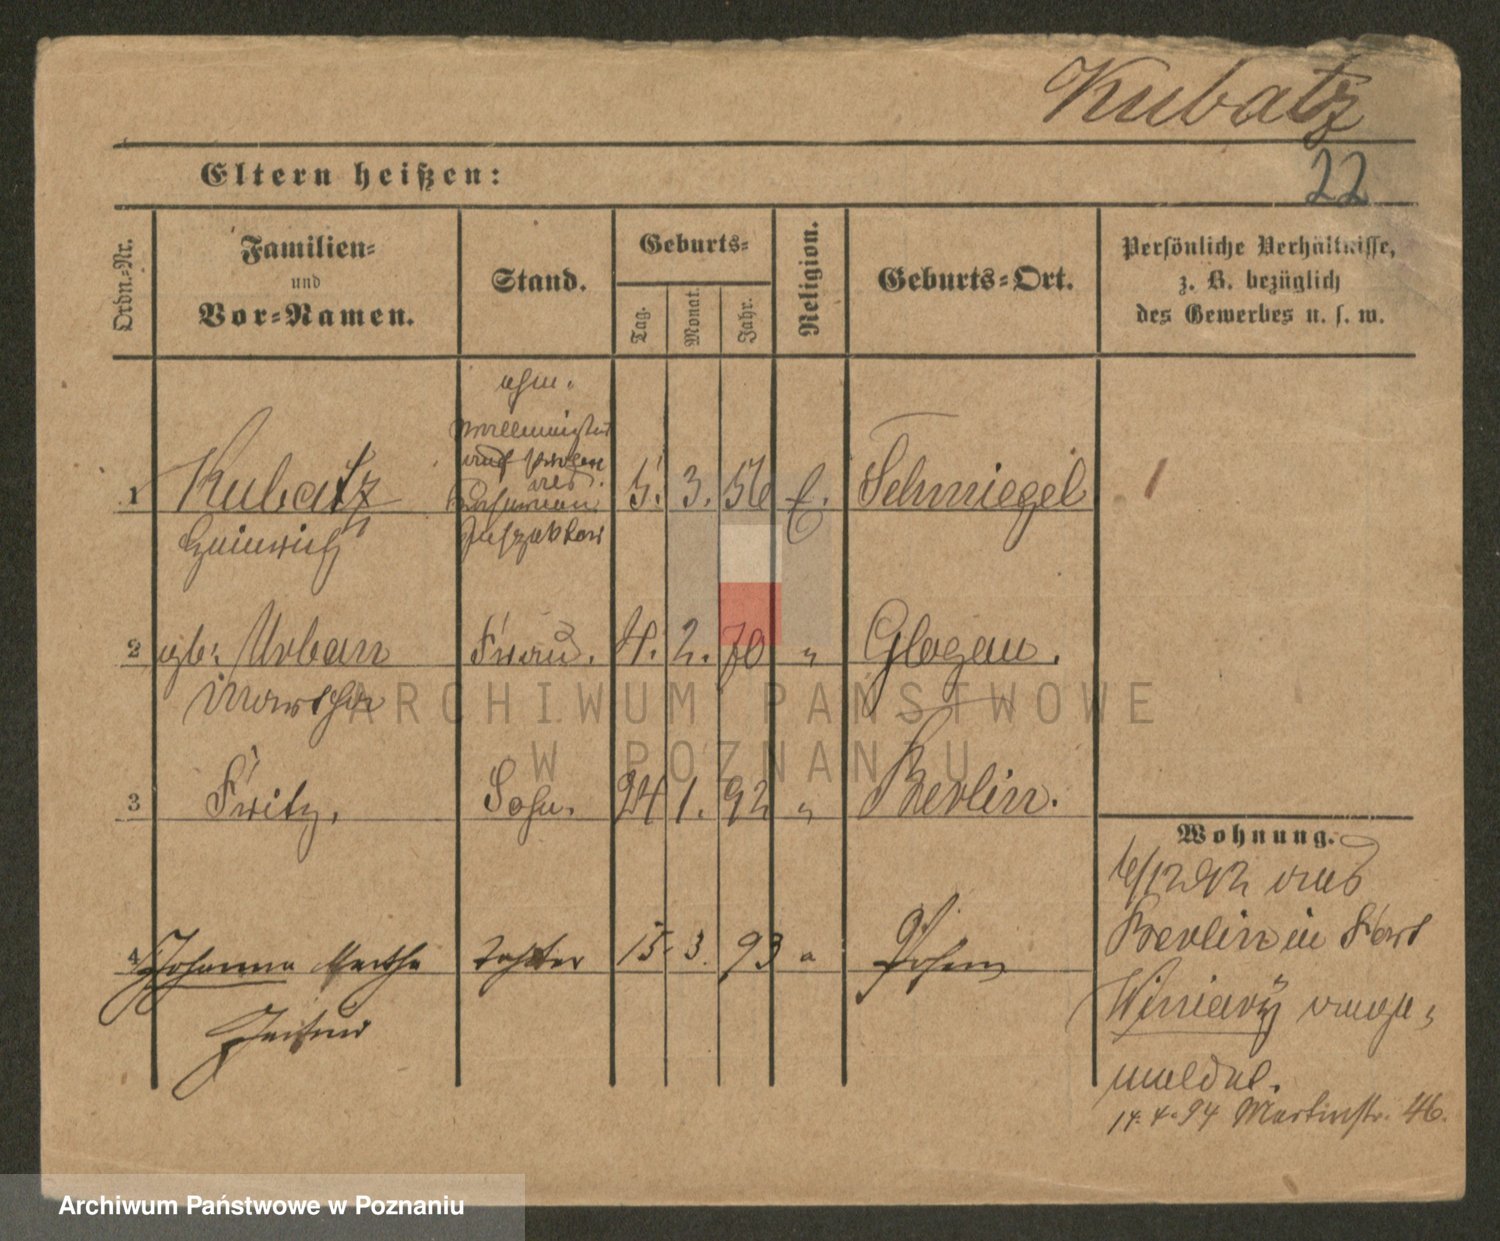 Kubatz
22
Eltern heißen:
Ordn.-Nr.
Familien-
und
Vor-Namen.
Stand.
Geburts-
Tag.
Monat.
Jahr.
Religion.
Geburts-Ort.
Persönliche Verhältnisse,
z. B. bezüglich
des Gewerbes u. s. w.
1 Kubatz 5. 3. 56 Schmiegel
Heinrich
2 gb. Urban Frau. 4. 2. 70 " Glogau.
Martha
3 Fritz. Sohn. 24 1. 92 " Berlin.
4 Johanna Martha Tochter 15. 3. 93 " Posen
Wohnung.
6/12 92 aus
Berlin in Fort
Winiary ange-
meldet.
14. 4. 94 Martinstr. 46.
ARCHIWUM PAŃSTWOWE
W POZNANIU
Archiwum Państwowe w Poznaniu